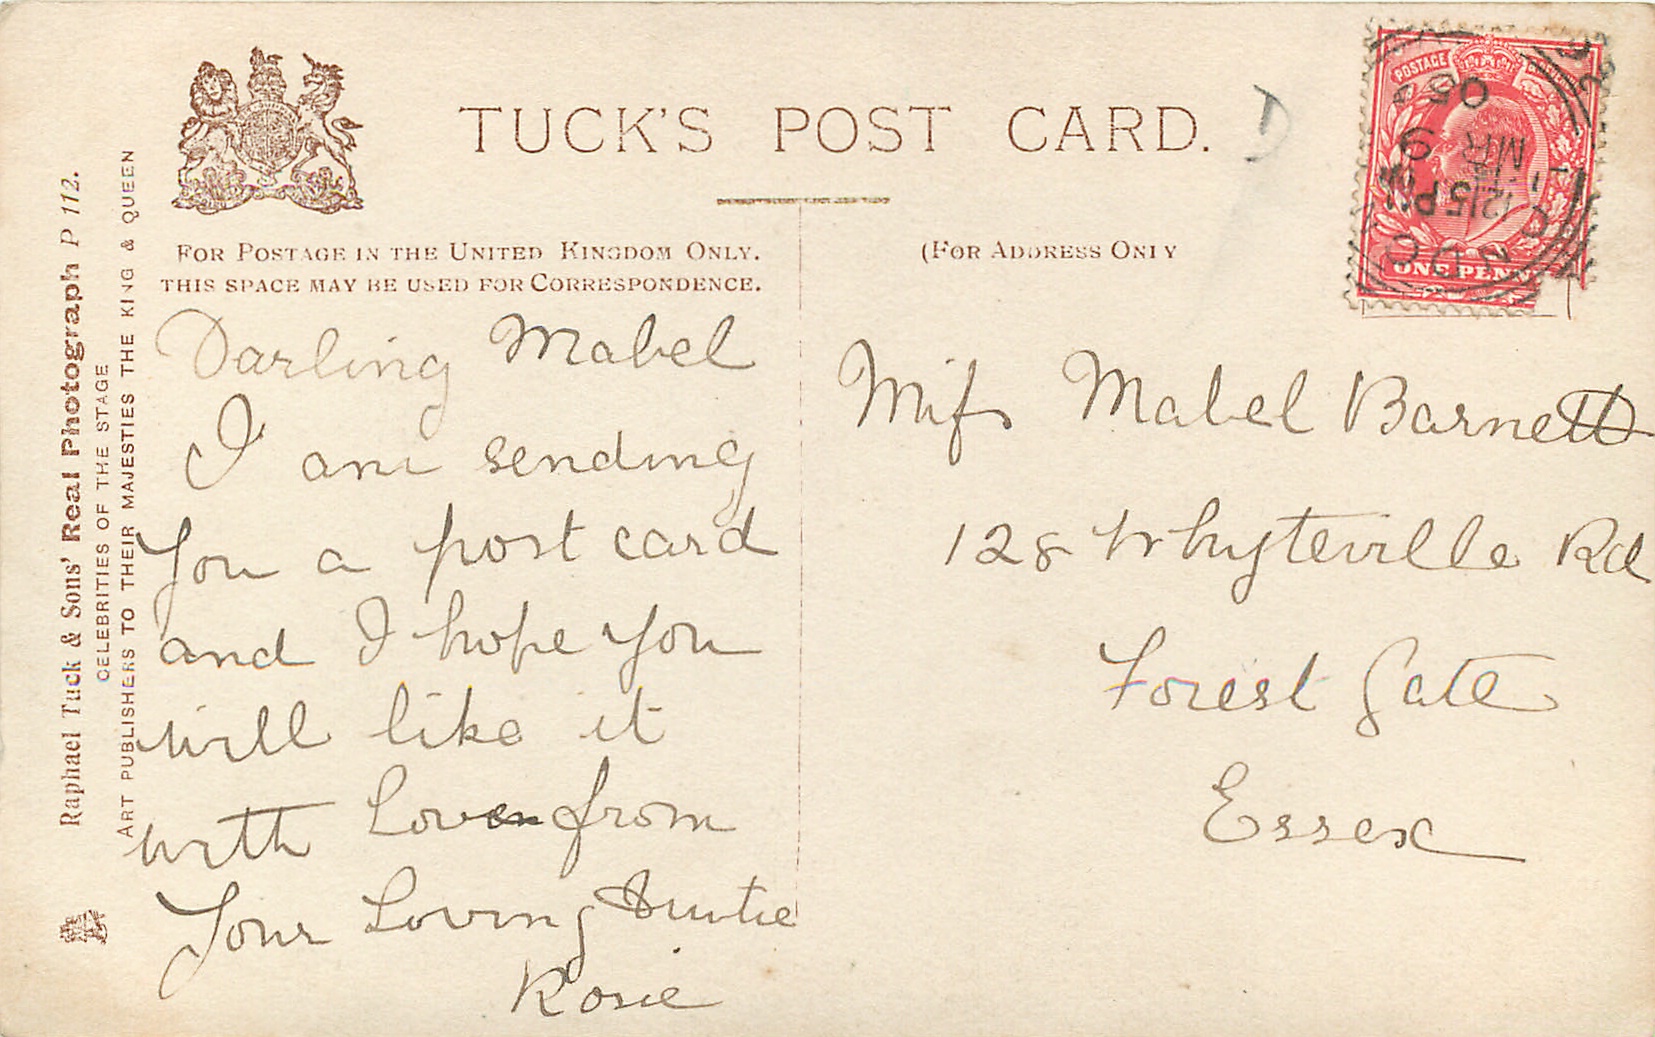 TUCK'S POST CARD.
FOR POSTAGE IN THE UNITED KINGDOM ONLY.
THIS SPACE MAY BE USED FOR CORRESPONDENCE.
(FOR ADDRESS ONLY
Raphael Tuck & Sons' Real Photograph P 112.
CELEBRITIES OF THE STAGE
ART PUBLISHERS TO THEIR MAJESTIES THE KING & QUEEN
Darling Mabel
I am sending
you a post card
and I hope you
will like it
with Love from
Your Loving Auntie
Rosie
Miss Mabel Barnett
128 Whyteville Rd
Forest Gate
Essex
D
POSTAGE
ONE PENNY
12 15 PM
MR 9
05